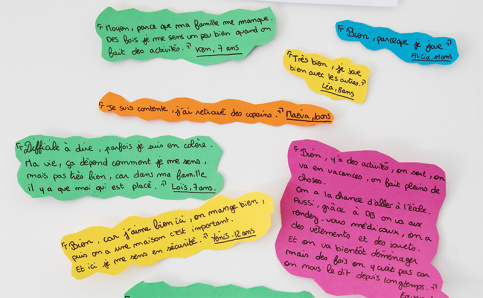 « Moyen, parce que ma famille me manque.
Des fois je me sens un peu bien quand on
fait des activités. » Ken, 7 ans
« Bien, parce que je joue »
Alicia
« Très bien, je joue
bien avec les autres. »
Léa, 8 ans
« Je suis contente, j'ai retrouvé des copains. » Maëva,
« Difficile à dire, parfois je suis en colère.
Ma vie, ça dépend comment je me sens,
mais pas très bien, car dans ma famille
il y a que moi qui est placé. » Loïs, 7 ans.
« Bien, car j'aime bien ici, on mange bien,
puis on a une maison c'est important.
Et ici je me sens en sécurité. » 12 ans
« Bien, y'a des activités, on sort, on
va en vacances, on fait pleins de
choses.
On a la chance d'aller à l'école.
Aussi, grâce à on va aux
rendez-vous médicaux, on a
des vêtements et des jouets.
Et on va bientôt déménager
mais des fois on y croit pas car
on nous le dit depuis longtemps. »